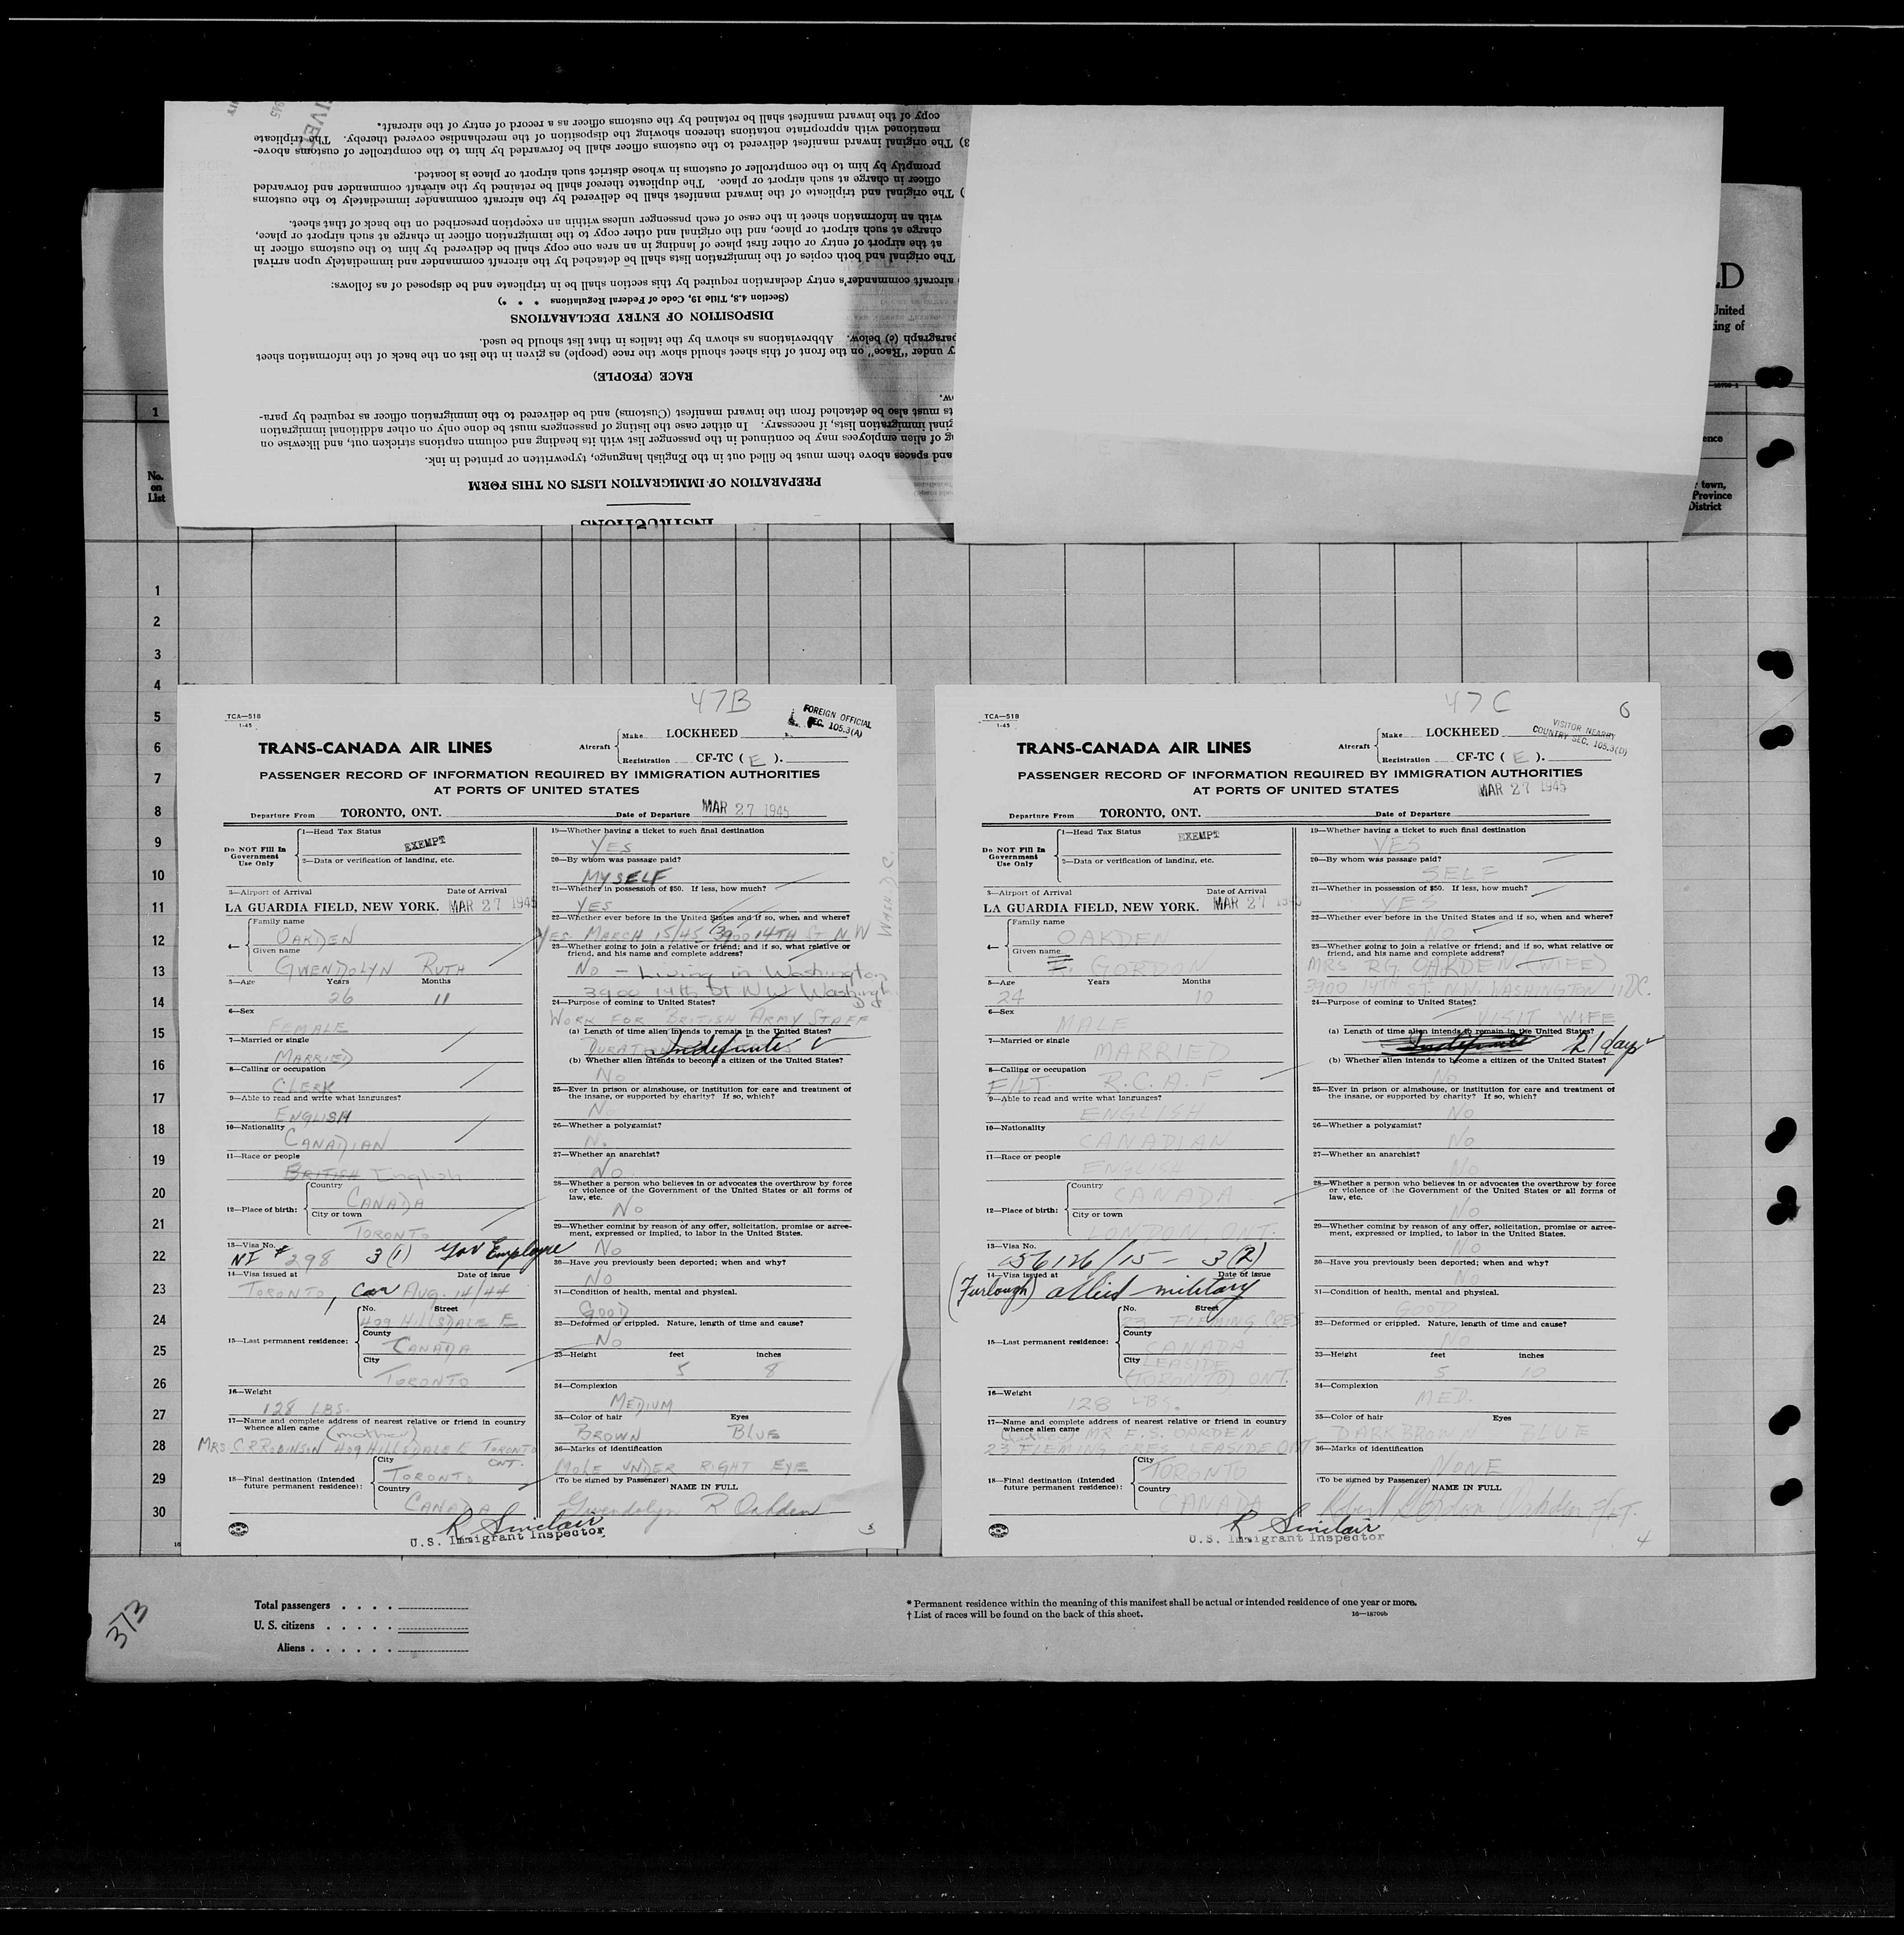 INSTRUCTIONS
PREPARATION OF IMMIGRATION LISTS ON THIS FORM
and spaces above them must be filled out in the English language, typewritten or printed in ink.
of alien employees may be continued in the passenger list with its heading and column captions stricken out, and likewise on
immigration lists, if necessary. In either case the listing of passengers must be done only on other additional immigration
must also be detached from the inward manifest (Customs) and be delivered to the immigration officer as required by para-
RACE (PEOPLE)
under "Race" on the front of this sheet should show the race (people) as given in the list on the back of the information sheet
paragraph (c) below. Abbreviations as shown by the italics in that list should be used.
DISPOSITION OF ENTRY DECLARATIONS
(Section 4.8, Title 19, Code of Federal Regulations * * *)
aircraft commander's entry declaration required by this section shall be in triplicate and be disposed of as follows:
The original and both copies of the immigration lists shall be detached by the aircraft commander and immediately upon arrival
at the airport of entry or other first place of landing in an area one copy shall be delivered by him to the customs officer in
charge at such airport or place, and the original and other copy to the immigration officer in charge at such airport or place,
with an information sheet in the case of each passenger unless within an exception prescribed on the back of that sheet.
The original and triplicate of the inward manifest shall be delivered by the aircraft commander immediately to the customs
officer in charge at such airport or place. The duplicate thereof shall be retained by the aircraft commander and forwarded
promptly by him to the comptroller of customs in whose district such airport or place is located.
3) The original inward manifest delivered to the customs officer shall be forwarded by him to the comptroller of customs above-
mentioned with appropriate notations thereon showing the disposition of the merchandise covered thereby. The triplicate
copy of the inward manifest shall be retained by the customs officer as a record of entry of the aircraft.
United
ing of
town,
Province
District
1
No.
on
List
1
2
3
4
5
6
7
8
9
10
11
12
13
14
15
16
17
18
19
20
21
22
23
24
25
26
27
28
29
30
47B
TCA—518
1-45
FOREIGN OFFICIAL
SEC. 105.3(A)
TRANS-CANADA AIR LINES
Aircraft
Make LOCKHEED
Registration CF-TC ( E ).
PASSENGER RECORD OF INFORMATION REQUIRED BY IMMIGRATION AUTHORITIES
AT PORTS OF UNITED STATES
Departure From TORONTO, ONT. Date of Departure MAR 27 1945
Do NOT Fill In
Government
Use Only
1—Head Tax Status EXEMPT
2—Data or verification of landing, etc.
3—Airport of Arrival Date of Arrival
LA GUARDIA FIELD, NEW YORK. MAR 27 1945
4— Family name OAKDEN
Given name GWENDOLYN RUTH
5—Age Years Months
26 11
6—Sex
FEMALE
7—Married or single
MARRIED
8—Calling or occupation
CLERK
9—Able to read and write what languages?
ENGLISH
10—Nationality
CANADIAN
11—Race or people
BRITISH English
12—Place of birth:
Country
CANADA
City or town
TORONTO
13—Visa No.
NI # 298 3(1) Gov Employee
14—Visa issued at Date of issue
TORONTO, Can AUG. 14/44
15—Last permanent residence:
No. Street
409 HILLSDALE E
County
CANADA
City
TORONTO
16—Weight
128 LBS.
17—Name and complete address of nearest relative or friend in country
whence alien came (mother)
MRS C R ROBINSON 409 HILLSDALE E TORONTO
ONT.
18—Final destination (Intended
future permanent residence):
City
TORONTO
Country
CANADA
R Sinclair
U.S. Immigrant Inspector
19—Whether having a ticket to such final destination
YES
20—By whom was passage paid?
MYSELF
21—Whether in possession of $50. If less, how much?
YES
22—Whether ever before in the United States and if so, when and where?
YES MARCH 15/45 3900 14TH ST N.W
WASH D C.
23—Whether going to join a relative or friend; and if so, what relative or
friend, and his name and complete address?
No — Living in Washington
3900 14th St N W Washingt
24—Purpose of coming to United States?
WORK FOR BRITISH ARMY STAFF
(a) Length of time alien intends to remain in the United States?
DURATION Indefinite
(b) Whether alien intends to become a citizen of the United States?
No
25—Ever in prison or almshouse, or institution for care and treatment of
the insane, or supported by charity? If so, which?
No
26—Whether a polygamist?
No
27—Whether an anarchist?
No
28—Whether a person who believes in or advocates the overthrow by force
or violence of the Government of the United States or all forms of
law, etc.
No
29—Whether coming by reason of any offer, solicitation, promise or agree-
ment, expressed or implied, to labor in the United States.
No
30—Have you previously been deported; when and why?
No
31—Condition of health, mental and physical.
GOOD
32—Deformed or crippled. Nature, length of time and cause?
No
33—Height feet inches
5 8
34—Complexion
MEDIUM
35—Color of hair Eyes
BROWN BLUE
36—Marks of identification
MOLE UNDER RIGHT EYE
(To be signed by Passenger) NAME IN FULL
Gwendolyn R Oakden
3
47C
6
TCA—518
1-45
VISITOR NEARBY
COUNTRY SEC. 105.3(D)
TRANS-CANADA AIR LINES
Aircraft
Make LOCKHEED
Registration CF-TC ( E ).
PASSENGER RECORD OF INFORMATION REQUIRED BY IMMIGRATION AUTHORITIES
AT PORTS OF UNITED STATES
MAR 27 1945
Departure From TORONTO, ONT. Date of Departure
Do NOT Fill In
Government
Use Only
1—Head Tax Status EXEMPT
2—Data or verification of landing, etc.
3—Airport of Arrival Date of Arrival
LA GUARDIA FIELD, NEW YORK. MAR 27
4— Family name OAKDEN
Given name R. GORDON
5—Age Years Months
24 10
6—Sex
MALE
7—Married or single
MARRIED
8—Calling or occupation
F/LT R.C.A.F
9—Able to read and write what languages?
ENGLISH
10—Nationality
CANADIAN
11—Race or people
ENGLISH
12—Place of birth:
Country
CANADA
City or town
LONDON ONT.
13—Visa No.
56126/15 — 3(2)
14—Visa issued at Date of issue
(Furlough) allied military
15—Last permanent residence:
No. Street
23 FLEMING CRES
County
CANADA
City
LEASIDE
(TORONTO) ONT.
16—Weight
128 LBS.
17—Name and complete address of nearest relative or friend in country
whence alien came MR E.S. OAKDEN
23 FLEMING CRES. LEASIDE ONT
18—Final destination (Intended
future permanent residence):
City
TORONTO
Country
CANADA
R Sinclair
U.S. Immigrant Inspector
19—Whether having a ticket to such final destination
YES
20—By whom was passage paid?
SELF
21—Whether in possession of $50. If less, how much?
YES
22—Whether ever before in the United States and if so, when and where?
NO
23—Whether going to join a relative or friend; and if so, what relative or
friend, and his name and complete address?
MRS R.G. OAKDEN (WIFE)
3900 14TH ST. N.W. WASHINGTON 11 DC.
24—Purpose of coming to United States?
VISIT WIFE
(a) Length of time alien intends to remain in the United States?
Indefinite 21 days
(b) Whether alien intends to become a citizen of the United States?
No
25—Ever in prison or almshouse, or institution for care and treatment of
the insane, or supported by charity? If so, which?
No
26—Whether a polygamist?
No
27—Whether an anarchist?
No
28—Whether a person who believes in or advocates the overthrow by force
or violence of the Government of the United States or all forms of
law, etc.
No
29—Whether coming by reason of any offer, solicitation, promise or agree-
ment, expressed or implied, to labor in the United States.
No
30—Have you previously been deported; when and why?
No
31—Condition of health, mental and physical.
GOOD
32—Deformed or crippled. Nature, length of time and cause?
No
33—Height feet inches
5 10
34—Complexion
MED.
35—Color of hair Eyes
DARK BROWN BLUE
36—Marks of identification
NONE
(To be signed by Passenger) NAME IN FULL
Gordon Oakden F/LT.
4
373
Total passengers
U. S. citizens
Aliens
* Permanent residence within the meaning of this manifest shall be actual or intended residence of one year or more.
† List of races will be found on the back of this sheet. 16—18709b